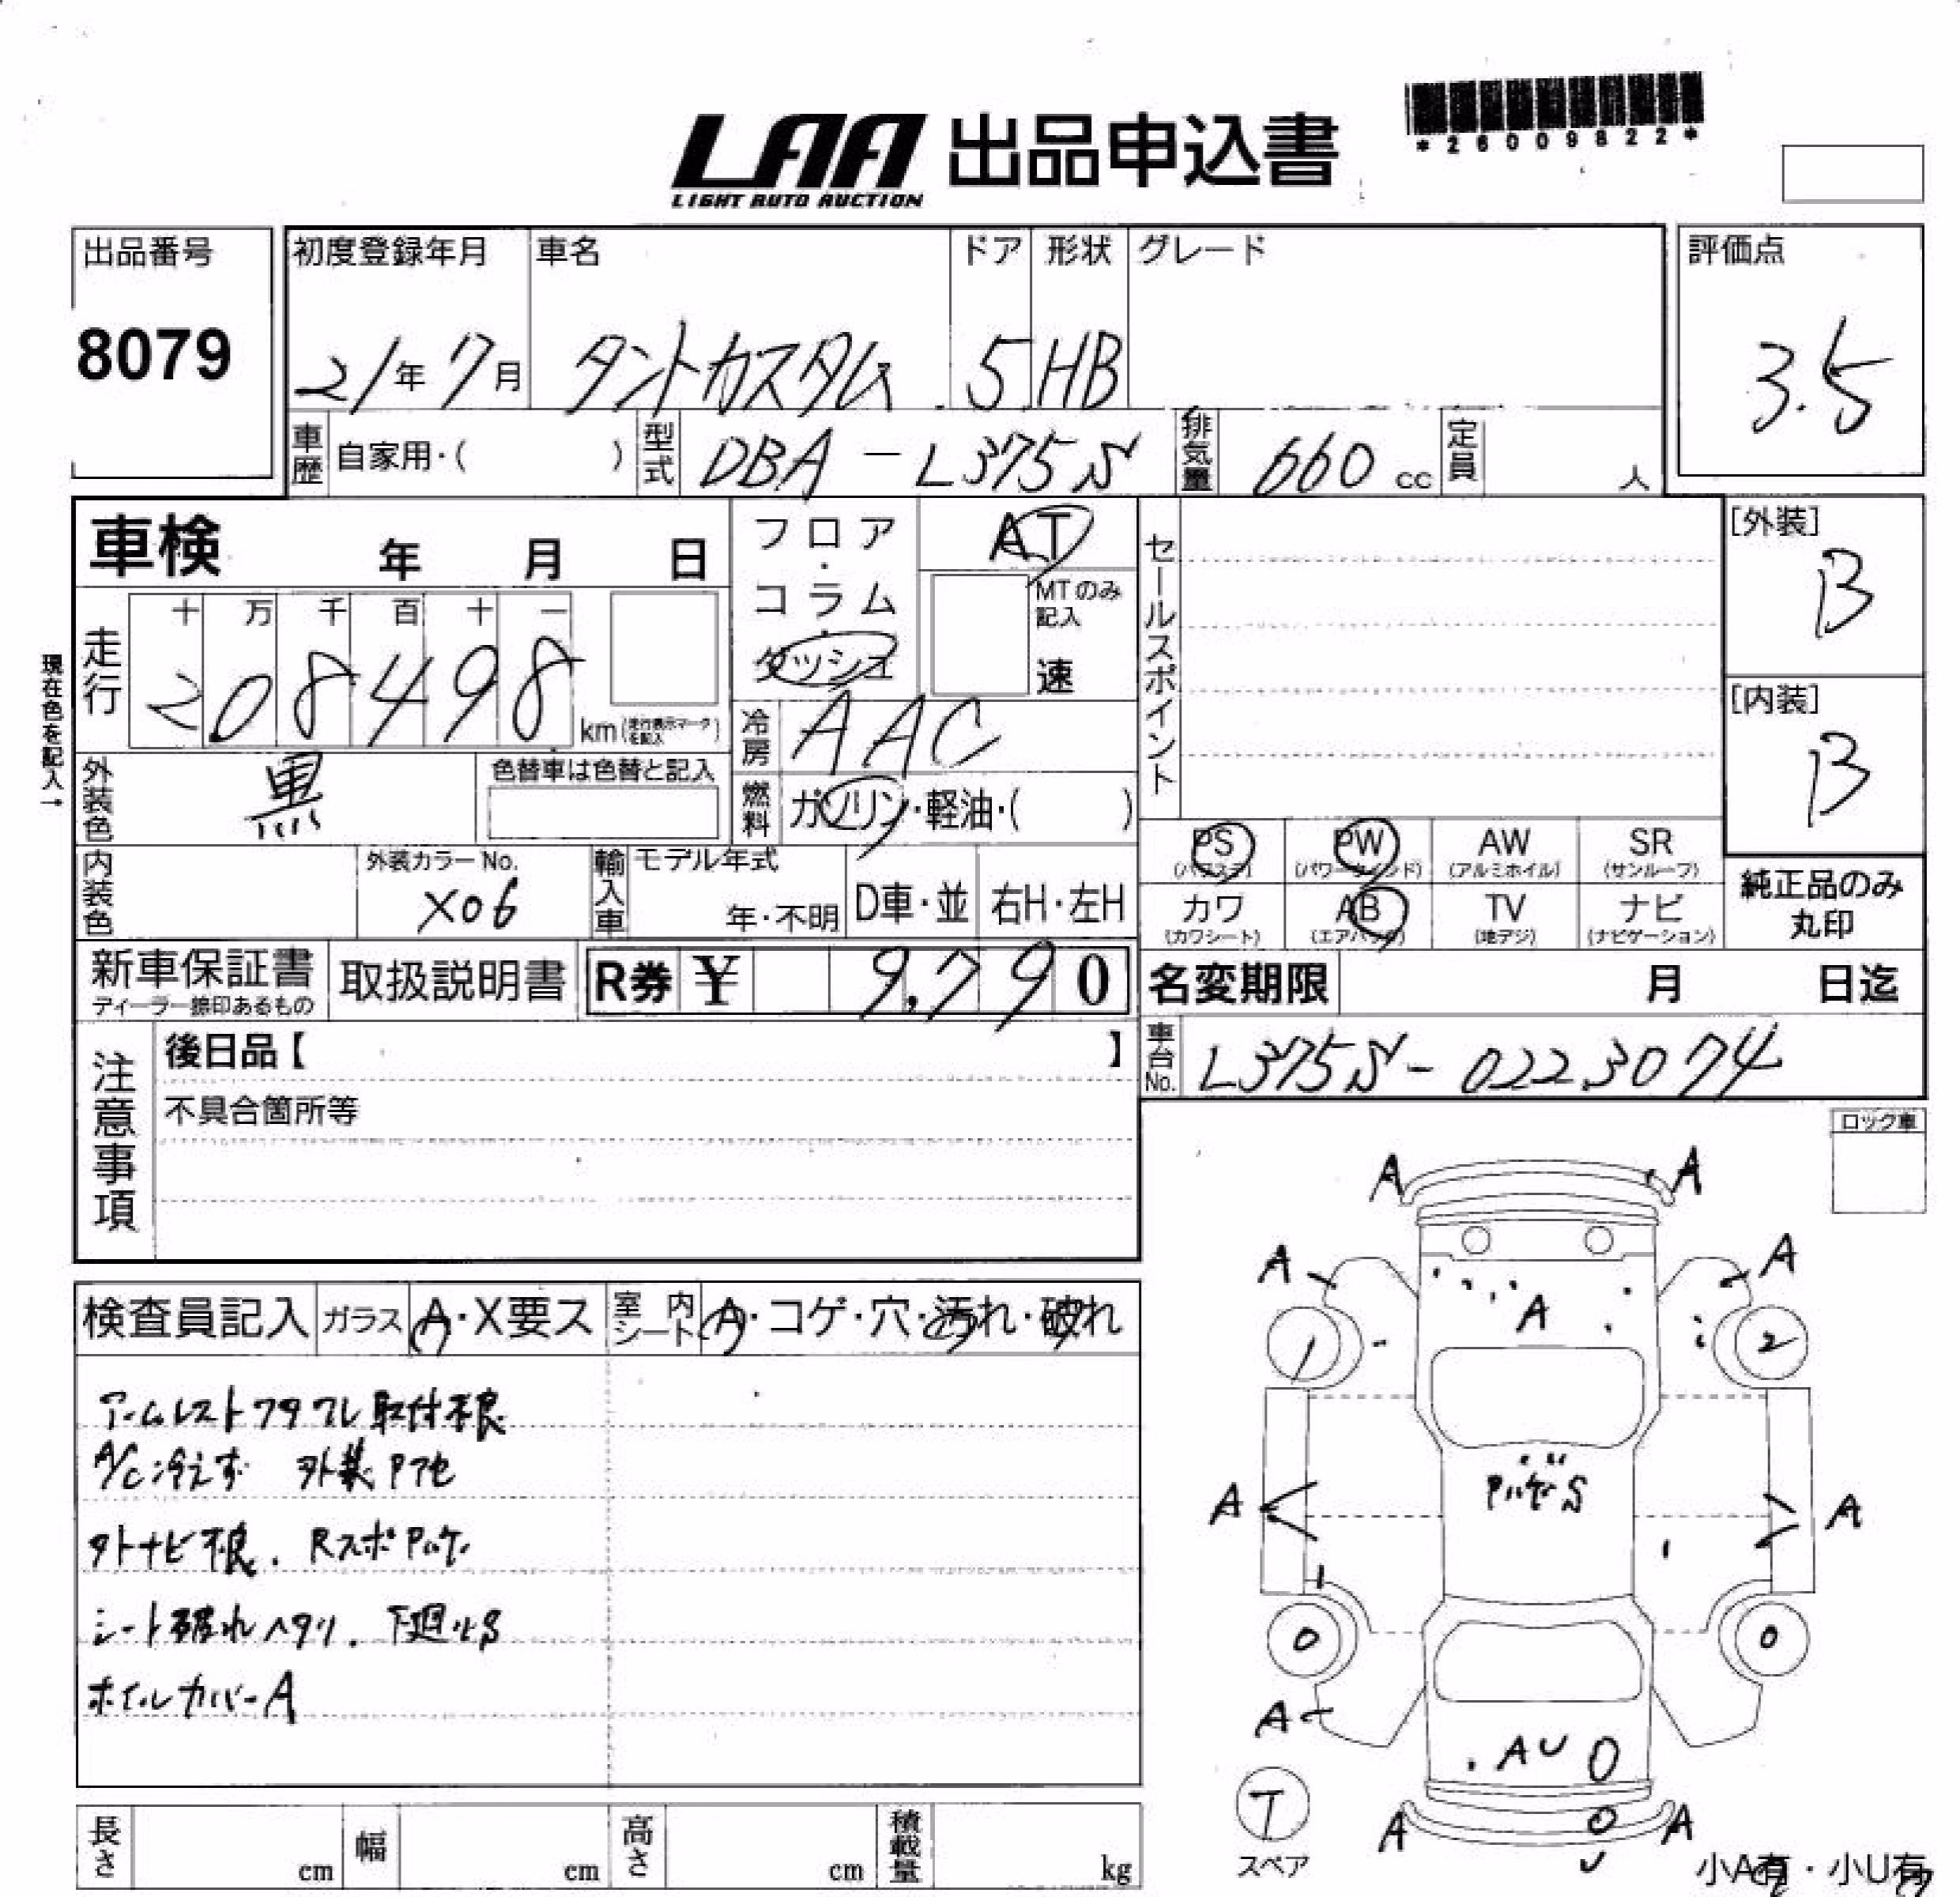 LAA 出品申込書
LIGHT AUTO AUCTION
*26009822*
出品番号
8079
初度登録年月 車名 ドア 形状 グレード
21年 7月 タントカスタム 5 HB
評価点
3.5
車歴 自家用・( ) 型式 DBA-L375S 排気量 660 cc 定員 人
車検 年 月 日
フロア・コラム・ダッシュ
AT
MTのみ記入
速
セールスポイント
[外装]
B
[内装]
B
現在色を記入→
走行 十 万 千 百 十 一
208498 km (走行表示マークを記入)
冷房 AAC
外装色 黒 色替車は色替と記入
燃料 ガソリン・軽油・( )
内装色 外装カラーNo. X06
輸入車 モデル年式 年・不明 D車・並 右H・左H
PS (パワステ) PW (パワーウインド) AW (アルミホイル) SR (サンルーフ)
カワ (カワシート) AB (エアバック) TV (地デジ) ナビ (ナビゲーション)
純正品のみ丸印
新車保証書 ディーラー捺印あるもの 取扱説明書 R券 ¥ 9,790
名変期限 月 日迄
車台No. L375S-0223074
注意事項
後日品【 】
不具合箇所等
ロック車
検査員記入 ガラス A・X要ス 室内シート A・コゲ・穴・汚れ・破れ
アームレストフタワレ取付不良
A/C冷えず 外装
外ナビ不良. Rスポ
シート破れヘタリ. 下廻りS
ホイルカバーA
A A
A A
A
1 2
S
A A
0 0
A
AU
A A
T
スペア
小A有・小U有
長さ cm 幅 cm 高さ cm 積載量 kg